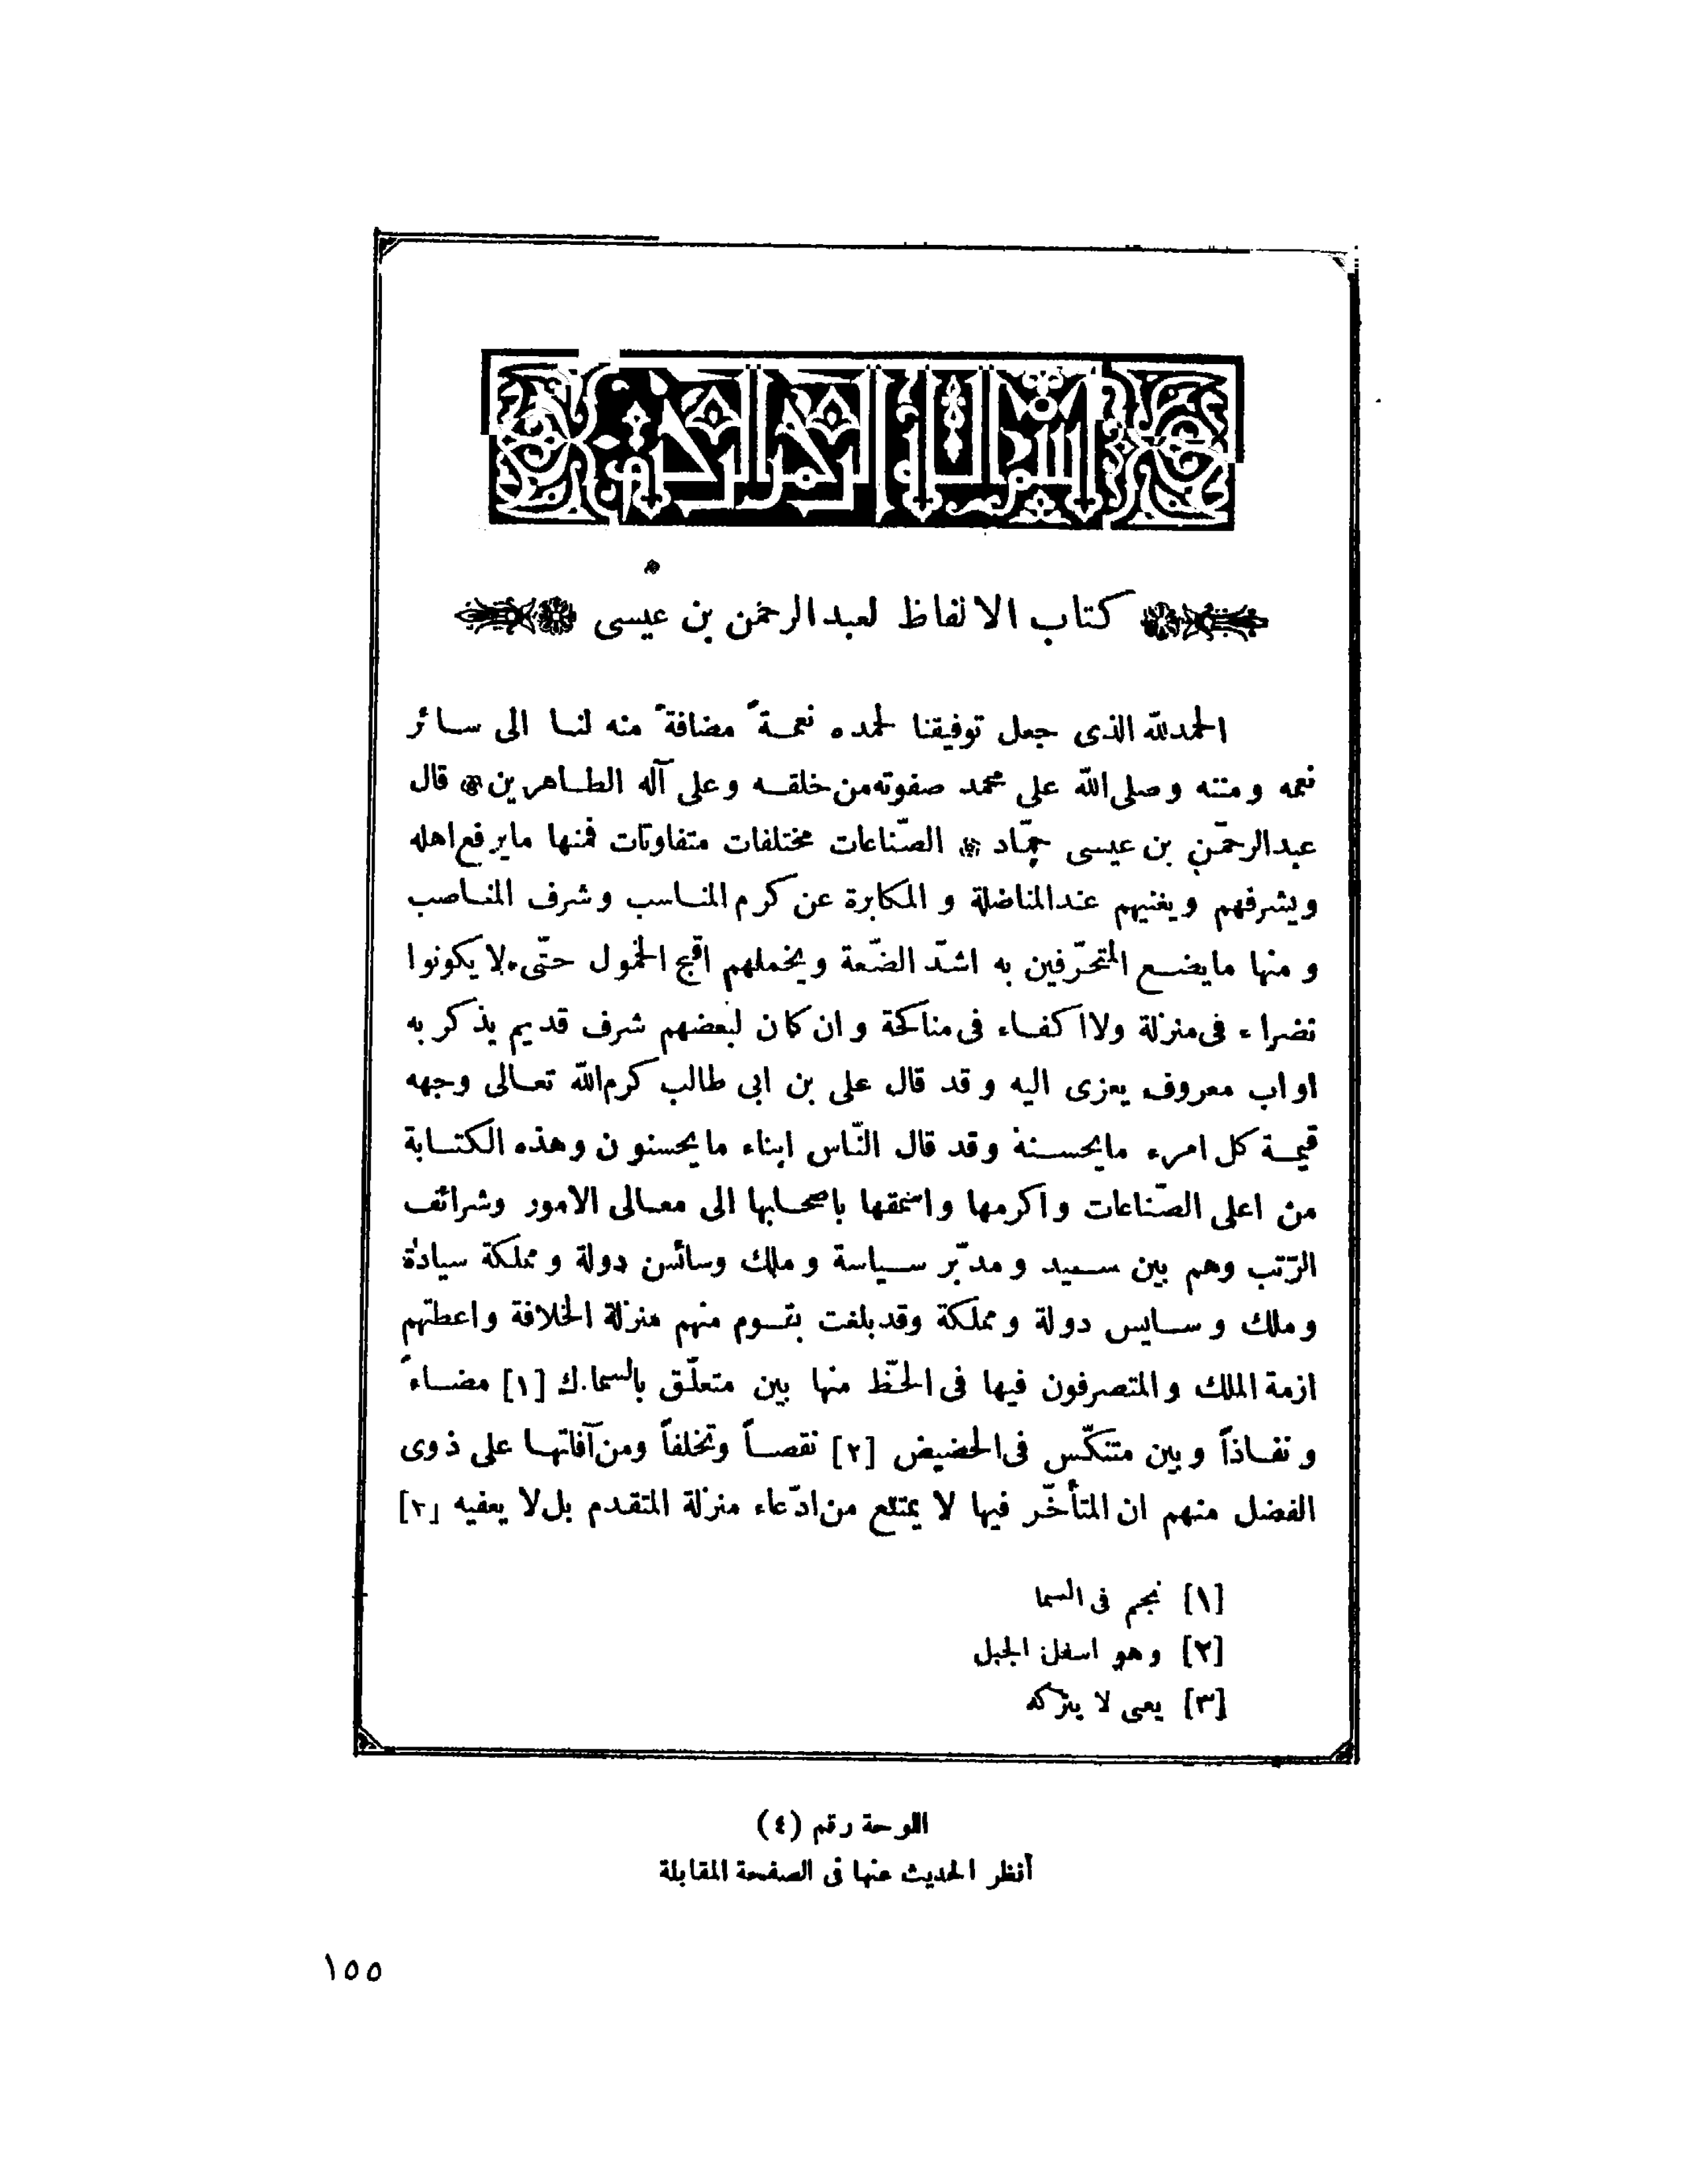 بسم الله الرحمن الرحيم
كتاب الالفاظ لعبدالرحمن بن عيسى
الحمدلله الذى جعل توفيقنا لحمده نعمةً مضافةً منه لنا الى سائر
نعمه ومننه وصلى الله على محمد صفوته من خلقه وعلى آله الطاهرين قال
عبدالرحمن بن عيسى حمّاد الصّناعات مختلفات متفاوتات فمنها مايرفع اهله
ويشرفهم ويغنيهم عندالمناضلة و المكابرة عن كرم المناسب وشرف المناصب
و منها مايضع المتحرّفين به اشدّ الضّعة ويخملهم اقبح الخمول حتّى لا يكونوا
نضراء فى منزلة ولا اكفاء فى مناكحة و ان كان لبعضهم شرف قديم يذكر به
او اب معروف يعزى اليه و قد قال على بن ابى طالب كرم الله تعالى وجهه
قيمة كل امرء مايحسنة وقد قال النّاس ابناء مايحسنون وهذه الكتابة
من اعلى الصّناعات واكرمها واسمقها باصحابها الى معالى الامور وشرائف
الرّتب وهم بين سيد و مدبّر سياسة و ملك وسائس دولة و مملكة سيادة
وملك و سايس دولة و مملكة وقدبلغت بقوم منهم منزلة الخلافة واعطتهم
ازمة الملك و المتصرفون فيها فى الحّظ منها بين متعلّق بالسماك [١] مضاءً
و نفاذاً و بين متنكّس فى الحضيض [٢] نقصاً وتخلفاً ومن آفاتها على ذوى
الفضل منهم ان المتأخّر فيها لا يمتنع من ادّعاء منزلة المتقدم بل لا يعفيه [٣]
[١] نجم فى السما
[٢] وهو اسفل الجبل
[٣] يعى لا يتركه
اللوحة رقم (٤)
أنظر الحديث عنها فى الصفحة المقابلة
١٥٥